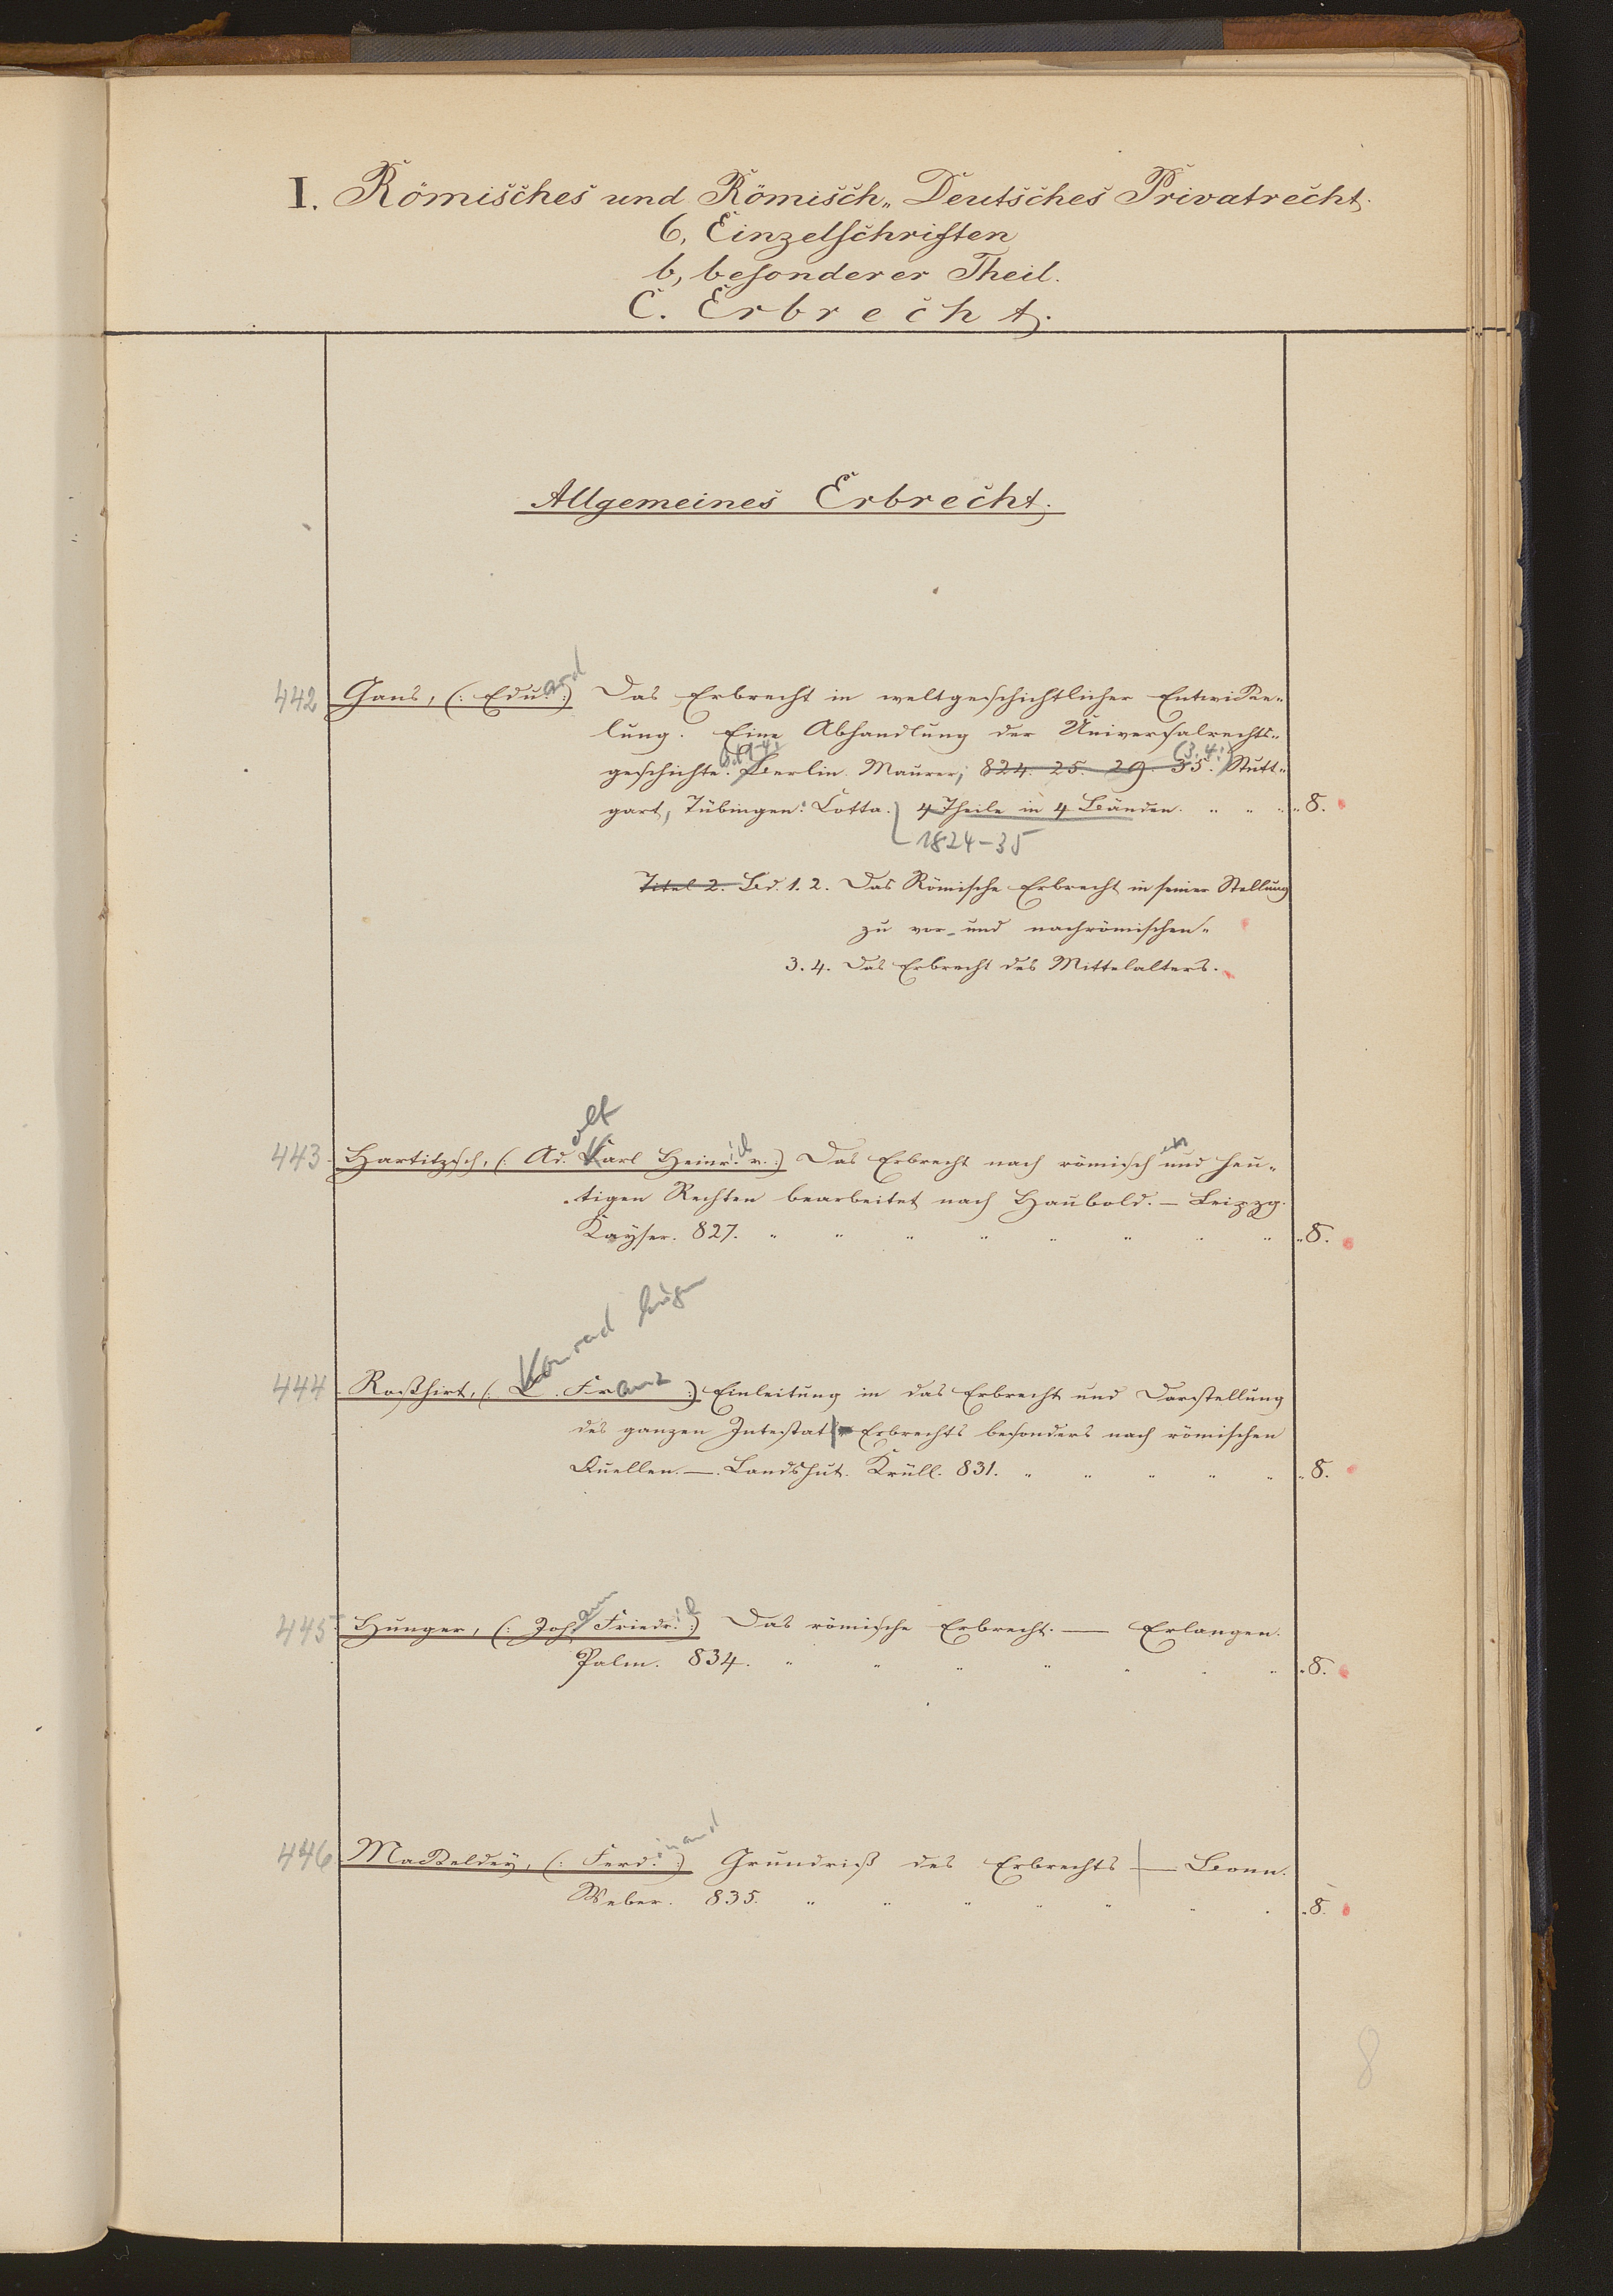 I. Römisches und Römisch„ Deutsches Privatrecht.
6, Einzelschriften
b, besonderer Theil.
C. Erbrecht.
Allgemeines Erbrecht.
442 Gans, (: Eduard :) Das Erbrecht in weltgeschichtlicher Entwicke„
lung. Eine Abhandlung der Universalrechts„
geschichte. Berlin. Maurer; 824. 25. 29. 35. (3.4:) Stutt„
gart, Tübingen: Cotta. 4 Theile in 4 Bänden. „ „ „ 8.
1824-35
Titel 2. Bd. 1. 2. Das Römische Erbrecht in seiner Stellung
zu vor- und nachrömischen„
3. 4. Das Erbrecht des Mittelalters.
443 Hartitzsch, (: Adolf Karl Heinrich v. :) Das Erbrecht nach römischen und heu„
tigen Rechten bearbeitet nach Haubold. — Leipzg.
Kayser. 827. „ „ „ „ „ „ „ „ 8.
444 Roßhirt, (: Konrad Eugen Franz :) Einleitung in das Erbrecht und Darstellung
des ganzen Intestat Erbrechts besonders nach römischen
Quellen. — Landshut. Krüll. 831. „ „ „ „ „ 8.
445 Hunger, (: Johann Friedrich :) Das römische Erbrecht. — Erlangen.
Palm. 834. „ „ „ „ „ „ „ 8.
446 Mackeldey, (: Ferdinand :) Grundriß des Erbrechts — Bonn.
Weber. 835. „ „ „ „ „ „ „ 8.
8